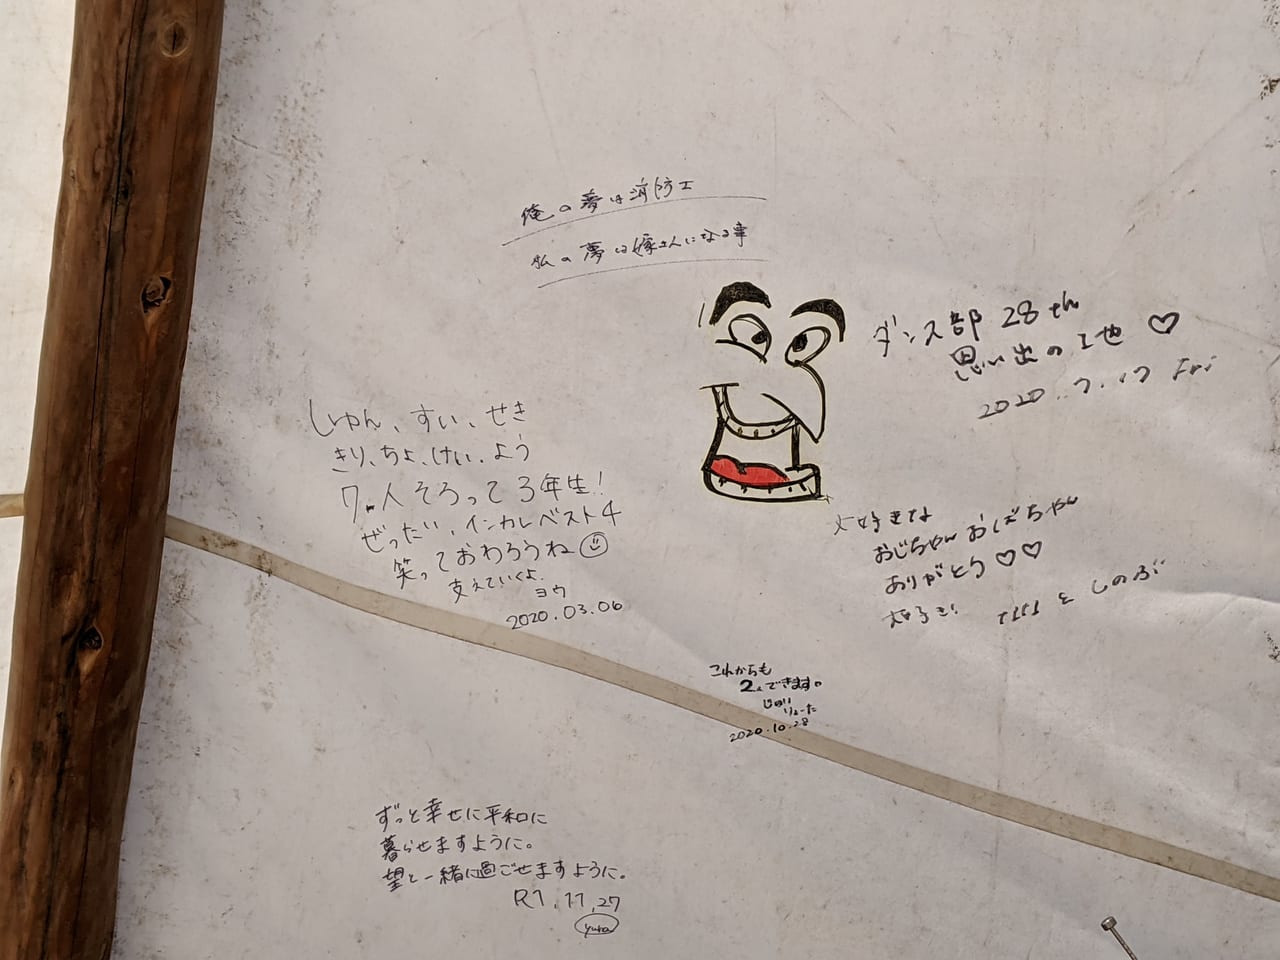 俺の夢は消防士
私の夢は嫁さんになる事
ダンス部 28th
思い出の工也 ♡
2020.7.17 Fri
しゅん、すい、せき
きり、ちょ、けい、よう
7人そろって3年生!
ぜったい、インカレベスト4
笑っておわろうね
支えていくよ.
ヨウ
2020.03.06
大好きな
おじちゃん おばちゃん
ありがとう♡♡
大好き!
と しのぶ
これからも
できます。
りゅーた
2020.10.28
ずっと幸せに平和に
暮らせますように。
望と一緒に過ごせますように。
R1.11.27
yuna